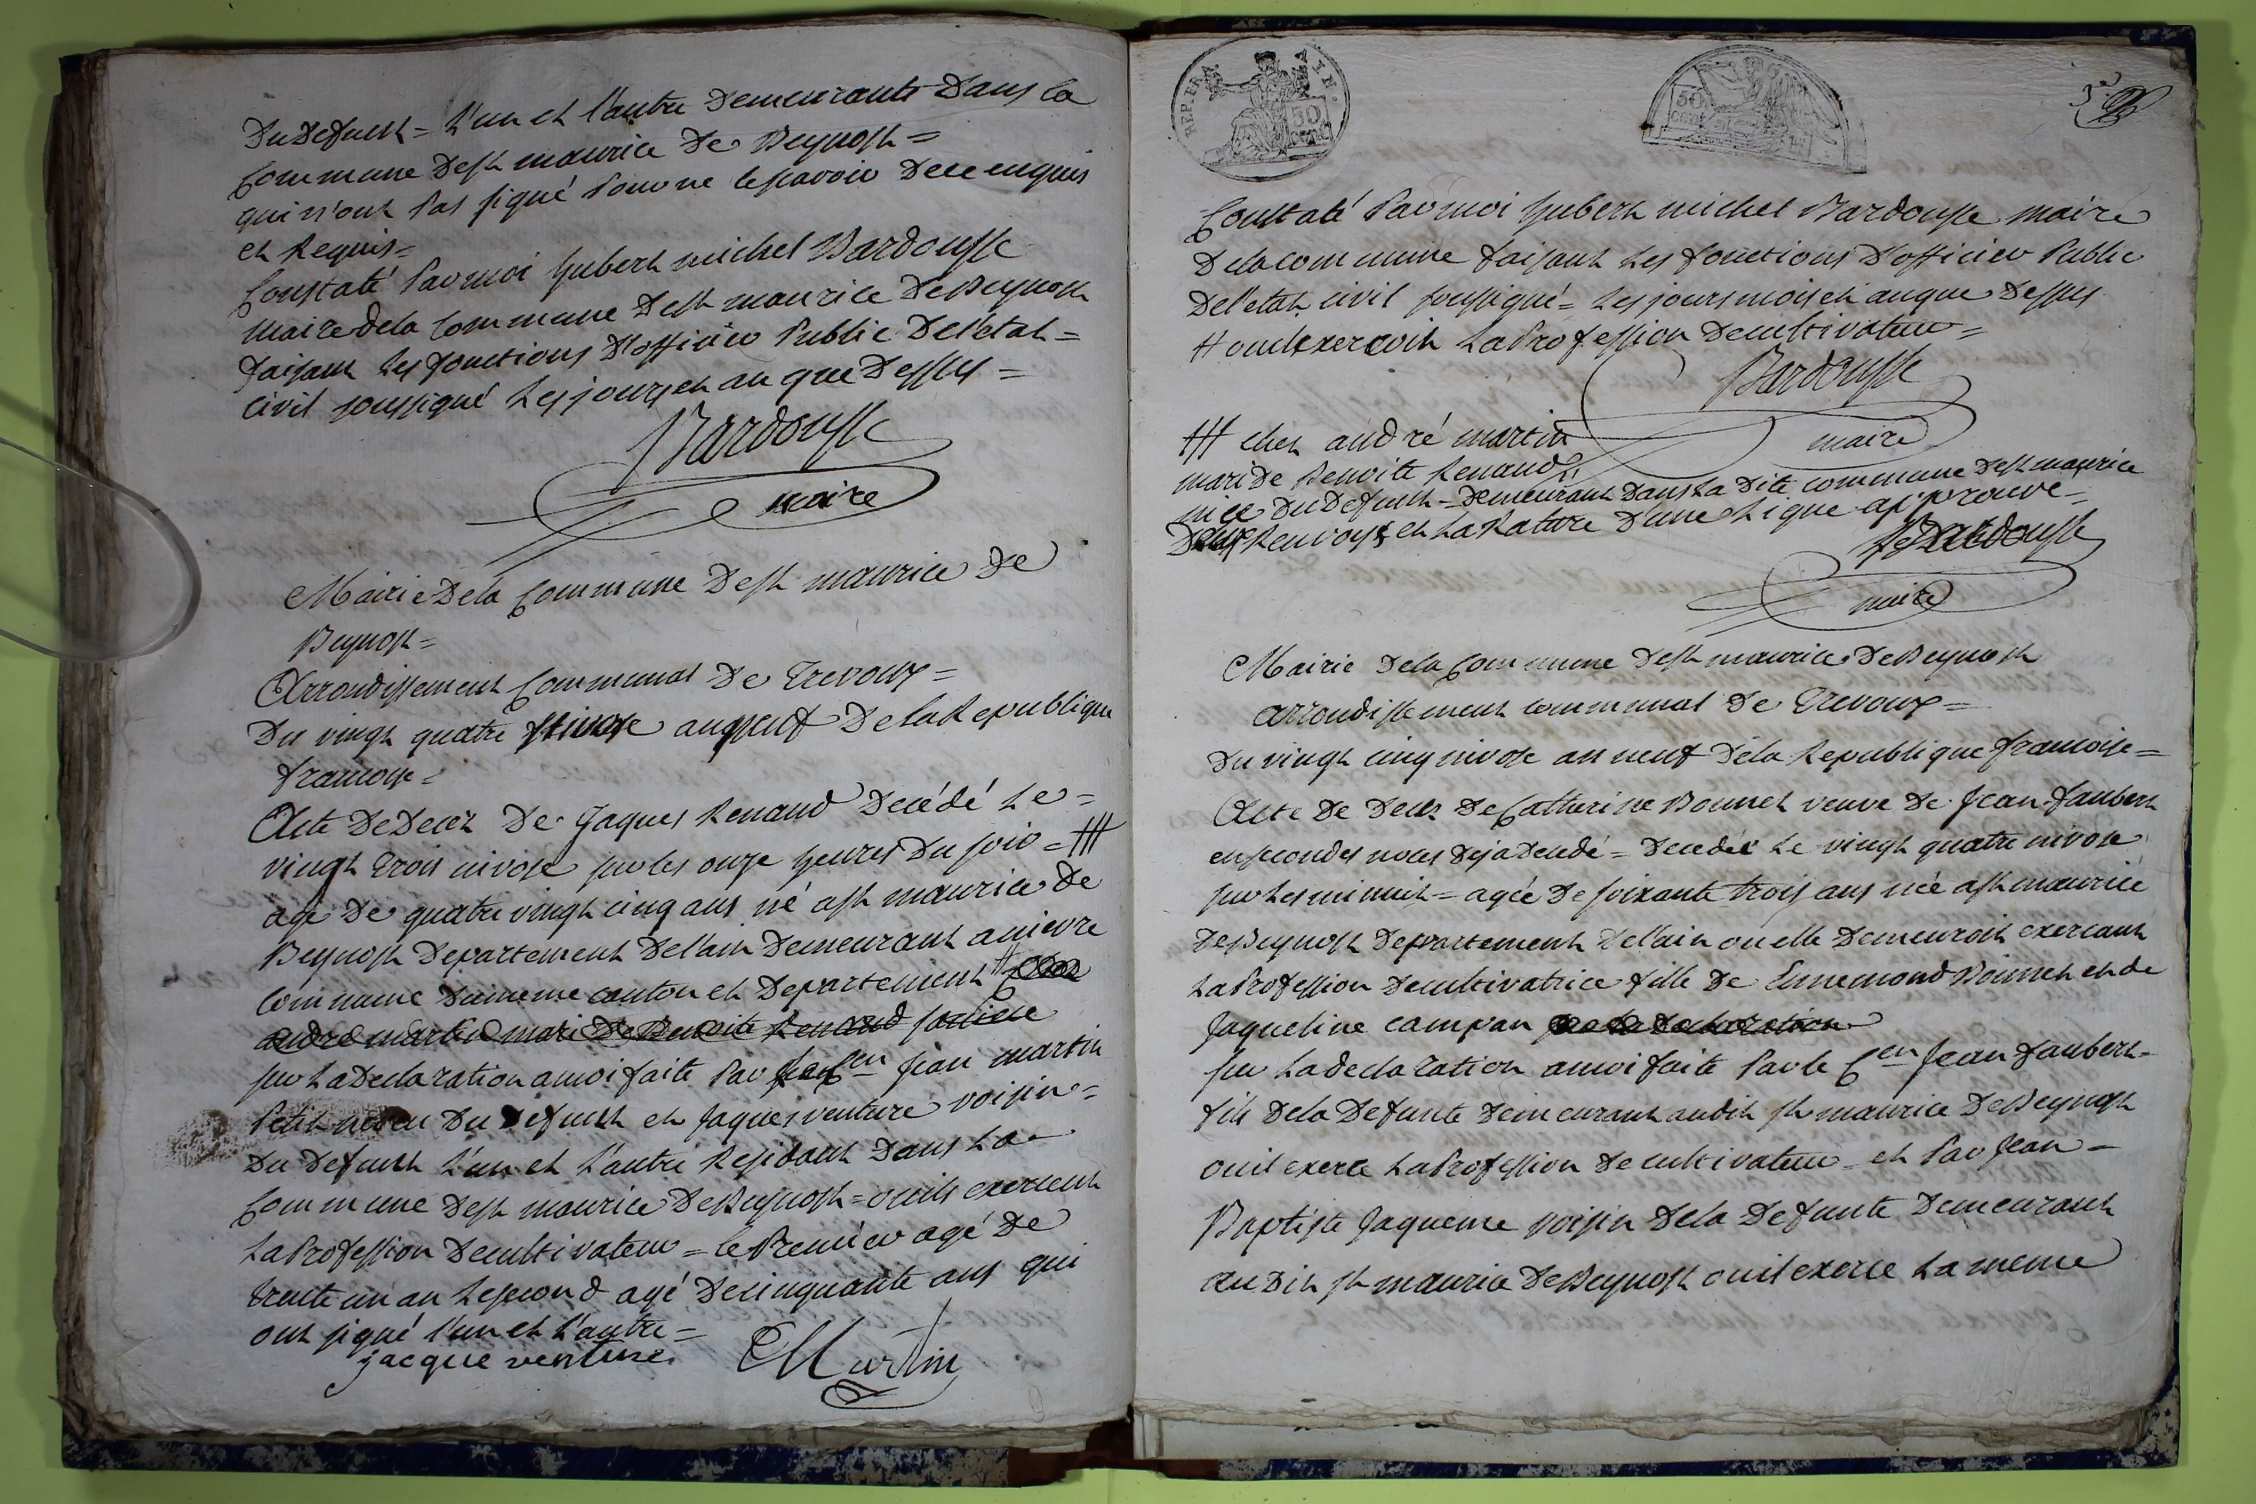 Du Defunt = l'un et l'autre Demeurants Dans la
Commune De st maurice De Beynost =
qui n'ont Pas signé Pour ne le scavoir De ce enquis
et Requis =
Constaté Par moi hubert michel Bardousse
maire de la Commune De st maurice De Beynost
faisant Les fonctions D'officier Public De l'etat =
civil soussigné Les jours et an que Dessus =
Bardousse
maire
Mairie De la Commune De st maurice De
Beynost =
Arrondissement Communal De Trevoux =
Du vingt quatre nivose an neuf De la Republique
francoise =
Acte De Decez De Jaques Renaud Decédé Le =
vingt trois nivose sur les onze heures Du soir = ###
agé De quatre vingt cinq ans né a st maurice De
Beynost Departement De l'ain Demeurant a nievre
Commune Du meme canton et Departement #
andré martin mari De Benoite Renaud sa niece
sur La Declaration a moi faite Par Jean martin
Petit neveu Du Defunt et Jaques venture voisin =
Du Defunt L'un et L'autre Residant Dans La =
Commune De st maurice De Beynost = ou ils exercent
La Profession De cultivateur = le Premier agé De
trente un an Le second agé De cinquante ans qui
ont signé l'un et L'autre =
jacque venture. Martin
REP. FRA. AIN. 50 CENT.
50 CENT.
5e
Constaté Par moi hubert michel Bardousse maire
De la commune faisant Les fonctions D'officier Public
De l'etat civil soussigné = Les jours mois et an que Dessus
# ou il exercoit La Profession De cultivateur =
Bardousse
maire
### chez andré martin
mari De Benoite Renaud
niece Du Defunt = Demeurant Dans La Dite commune De st maurice
Deux Renvoys et La Rature D'une Ligne approuvé =
Bardousse
maire
Mairie De la Commune De st maurice De Beynost
arrondissement communal De Trevoux =
Du vingt cinq nivose an neuf De la Republique francoise =
Acte De Decez De Catherine Bonnet veuve De Jean faubert
en secondes noces Deja Decedé = Decedée Le vingt quatre nivose
sur Les minuit = agée De soixante trois ans née a st maurice
De Beynost Departement De l'ain ou elle Demeuroit exercant
La Profession De cultivatrice fille De Ennemond Bonnet et de
Jaqueline campan sur la Declaration
sur La declaration a moi faite Par le Cen Jean faubert =
fils De la Defunte Demeurant au dit st maurice De Beynost
ou il exerce La Profession De cultivateur = et Par Jean =
Baptiste Jaqueme voisin De la Defunte Demeurant
au Dit st maurice De Beynost ou il exerce La meme